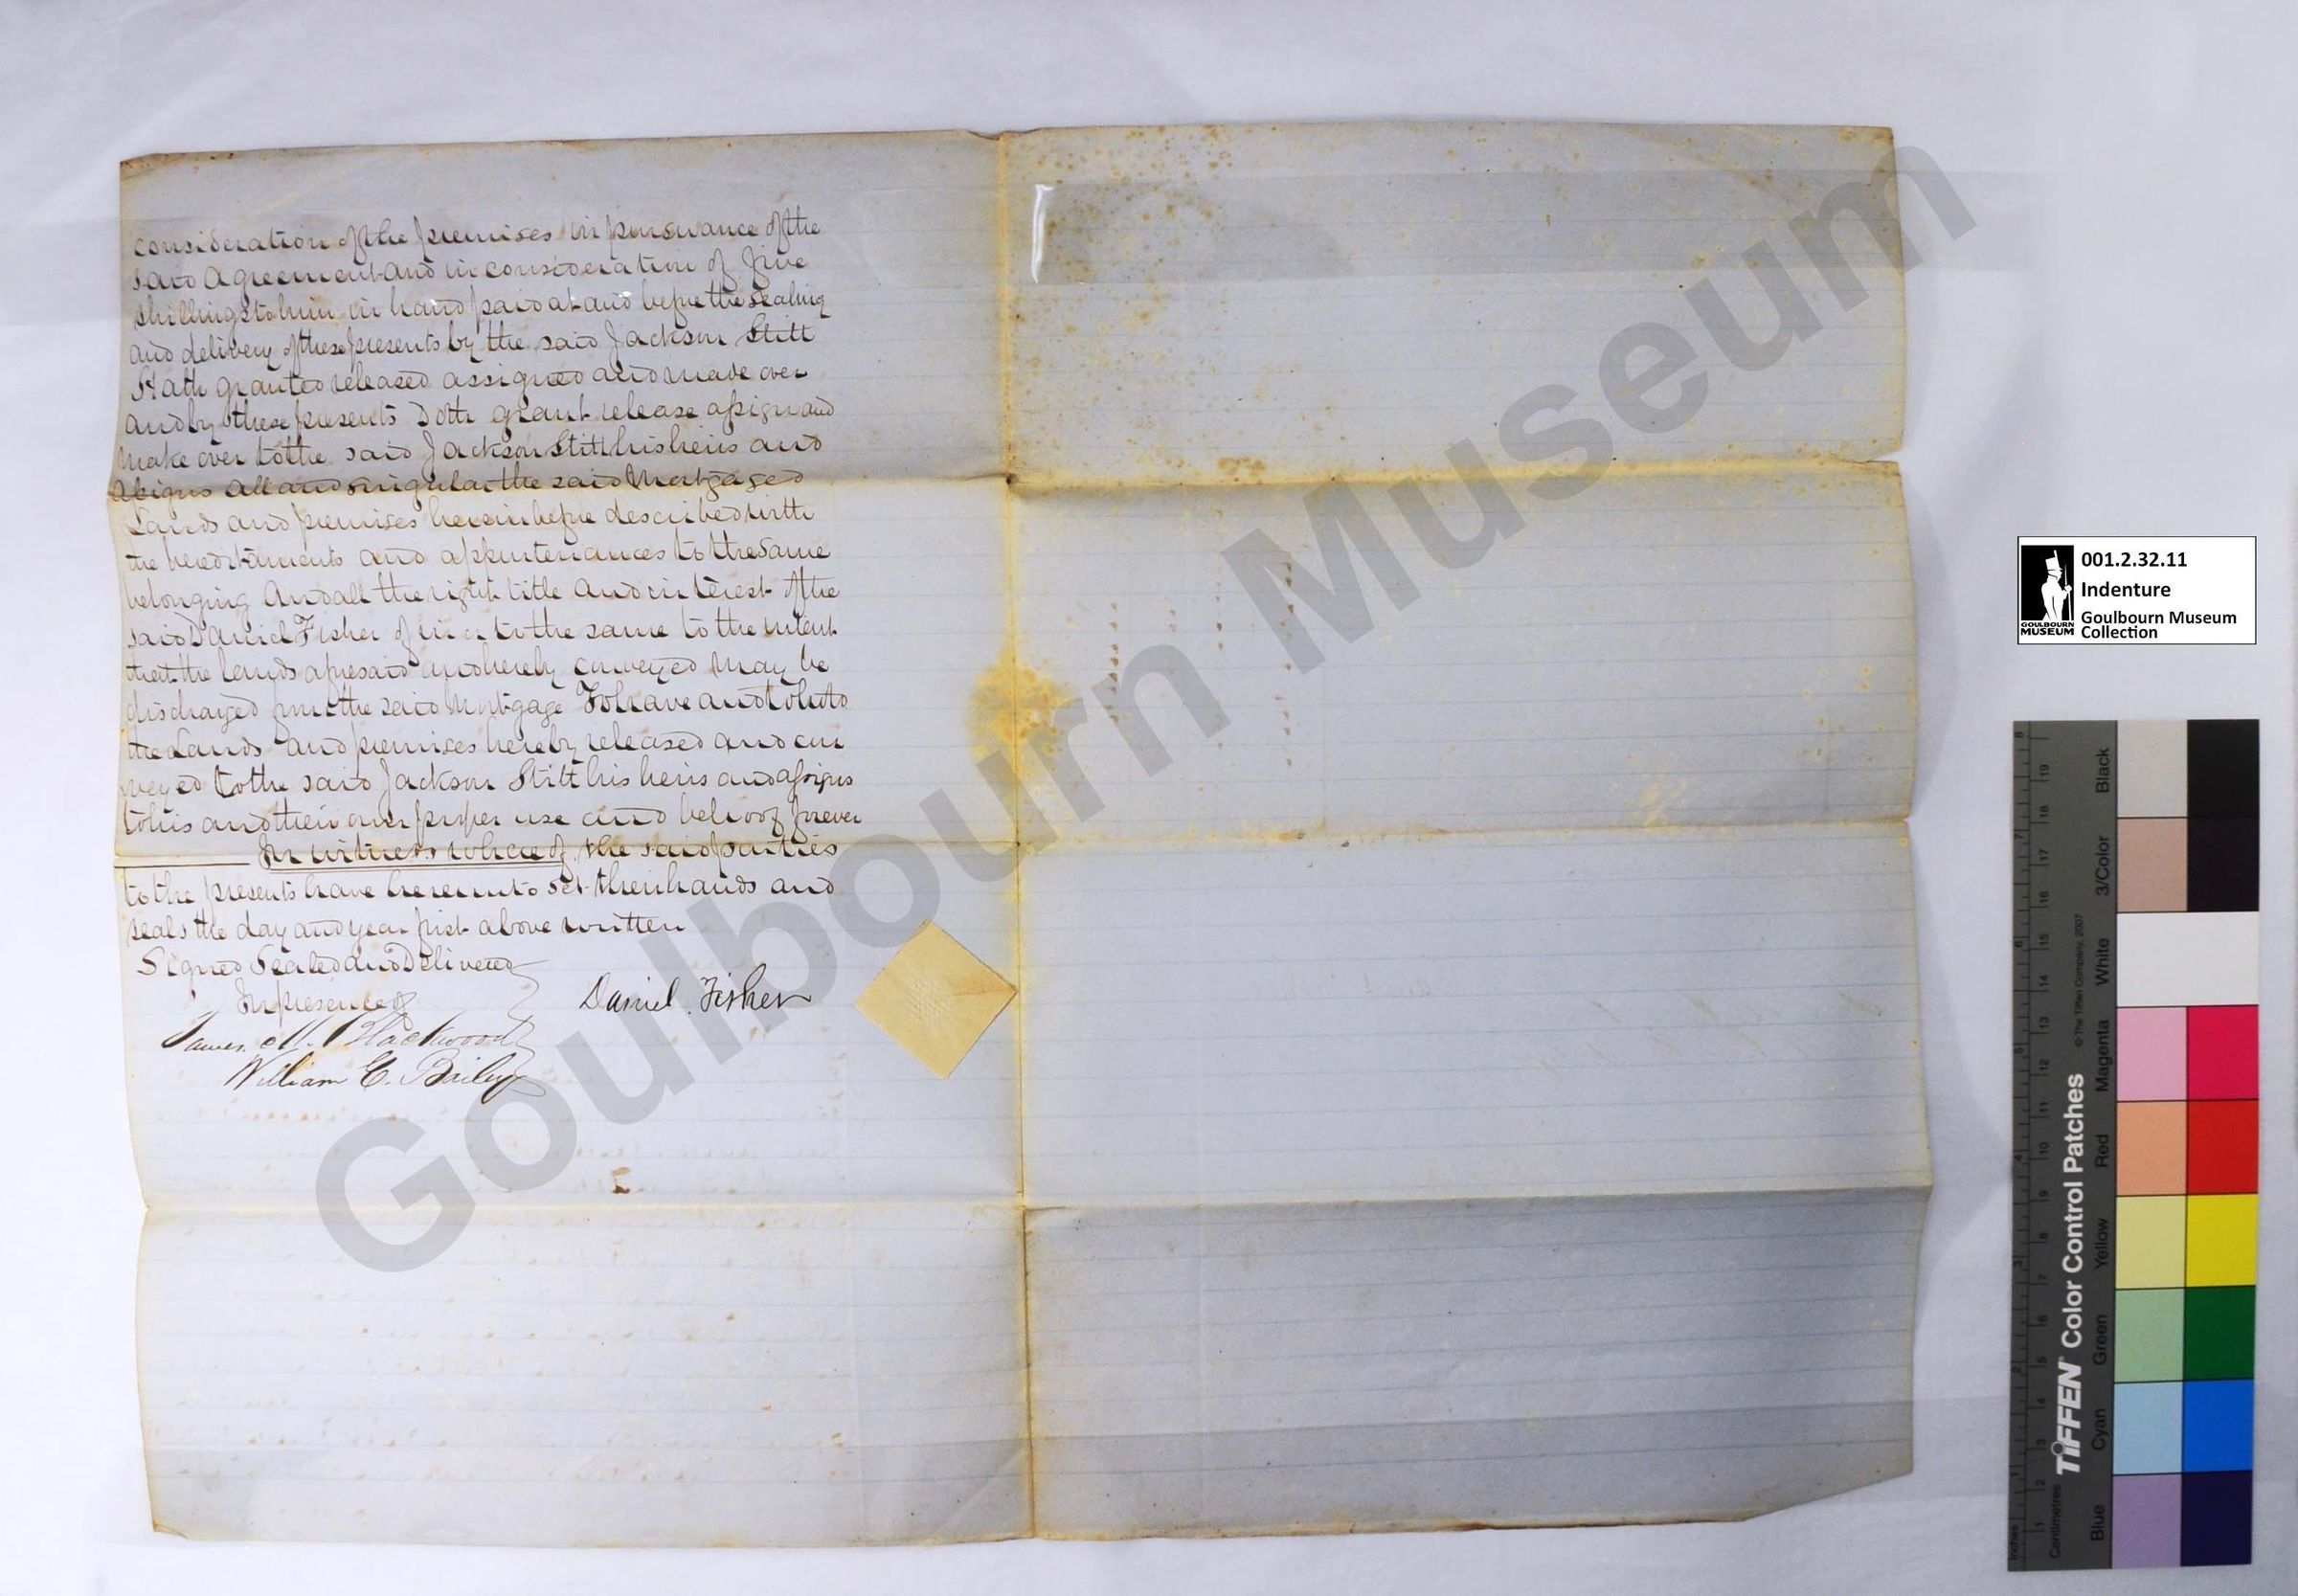 consideration of the premises in pursuance of the
said Agreement and in consideration of five
shillings to him in hand paid at and before the sealing
and delivery of these presents by the said Jackson Stitt
Hath granted released assigned and made over
and by these presents Doth grant release assign and
make over to the said Jackson Stitt his heirs and
Assigns All and singular the said Mortgaged
Lands and premises herein before described with
the hereditaments and appurtenances to the same
belonging And all the right title and interest of the
said Daniel Fisher of in or to the same to the intent
that the lands aforesaid and hereby conveyed may be
discharged from the said Mortgage To have and to hold
the Lands and premises hereby released and con
veyed to the said Jackson Stitt his heirs and assigns
to his and their own proper use and behoof forever
In witness whereof the said parties
to the presents have hereunto set their hands and
seals the day and year first above written
Signed Sealed and Delivered
In presence of
Daniel Fisher
James M. Blackwood
William C. Bailey
Goulbourn Museum
001.2.32.11
Indenture
Goulbourn Museum
Collection
GOULBOURN
MUSEUM
TIFFEN Color Control Patches
© The Tiffen Company, 2007
Inches
Centimetres
Blue
Cyan
Green
Yellow
Red
Magenta
White
3/Color
Black